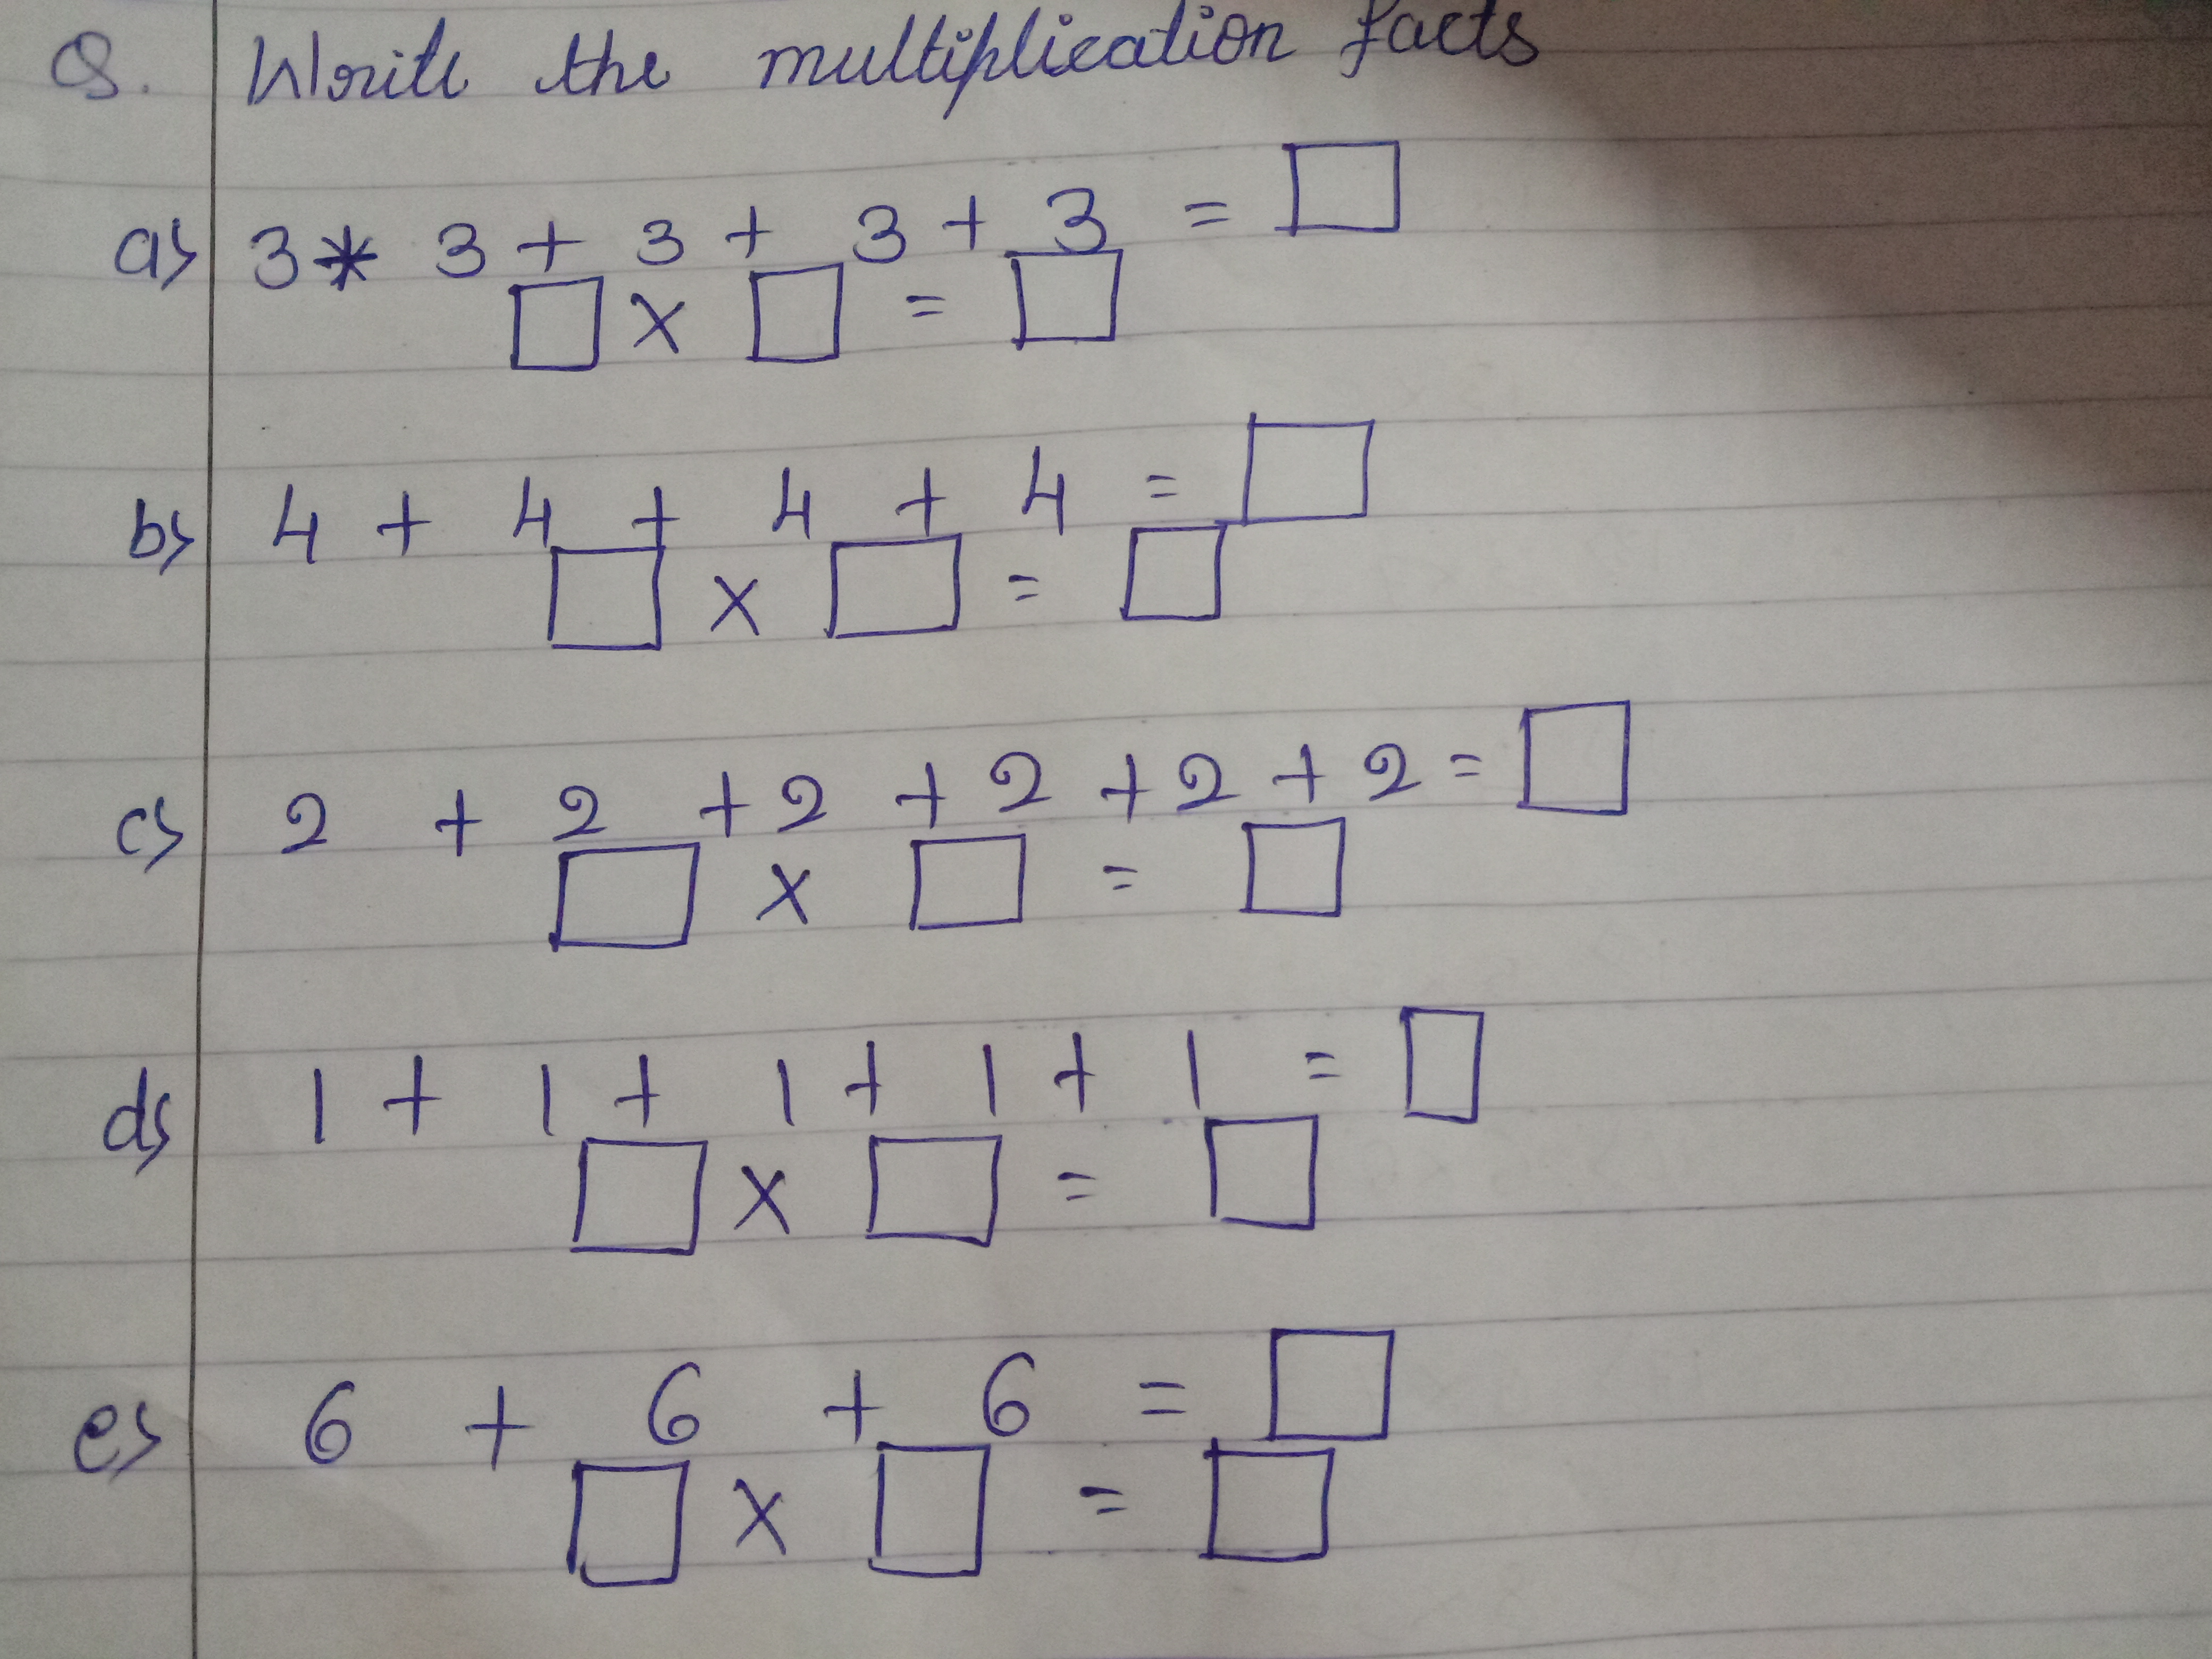 Q. Write the multiplication facts
a) 3* 3 + 3 + 3 + 3 = □
□ × □ = □
b) 4 + 4 + 4 + 4 = □
□ × □ = □
c) 2 + 2 + 2 + 2 + 2 + 2 = □
□ × □ = □
d) 1 + 1 + 1 + 1 + 1 = □
□ × □ = □
e) 6 + 6 + 6 = □
□ × □ = □